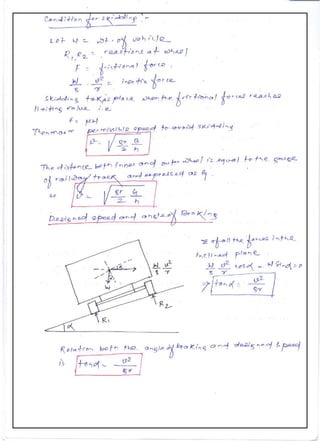 Condition for skidding :-
Let W = wt. of vehicle
R1, R2 = reactions at wheel
F = frictional force
W/g · v²/r = inertia force
Skidding takes place when the frictional force reaches
limiting value i.e
F = μW
Then max permissible speed to avoid skidding
v = √(gr/2 · B/h)
The distance betn inner and outer wheel is equal to the gauge
of railway track and expressed as G
so v = √(gr/2 · G/h)
Designed speed and angle of Banking
Σ of all the forces in the
Inclined plane
W/g v²/r cosα - W sinα = 0
⇒ tanα = v²/gr
W
R2
R1
α
Relation betn the angle of banking and designed speed
is tanα = v²/gr